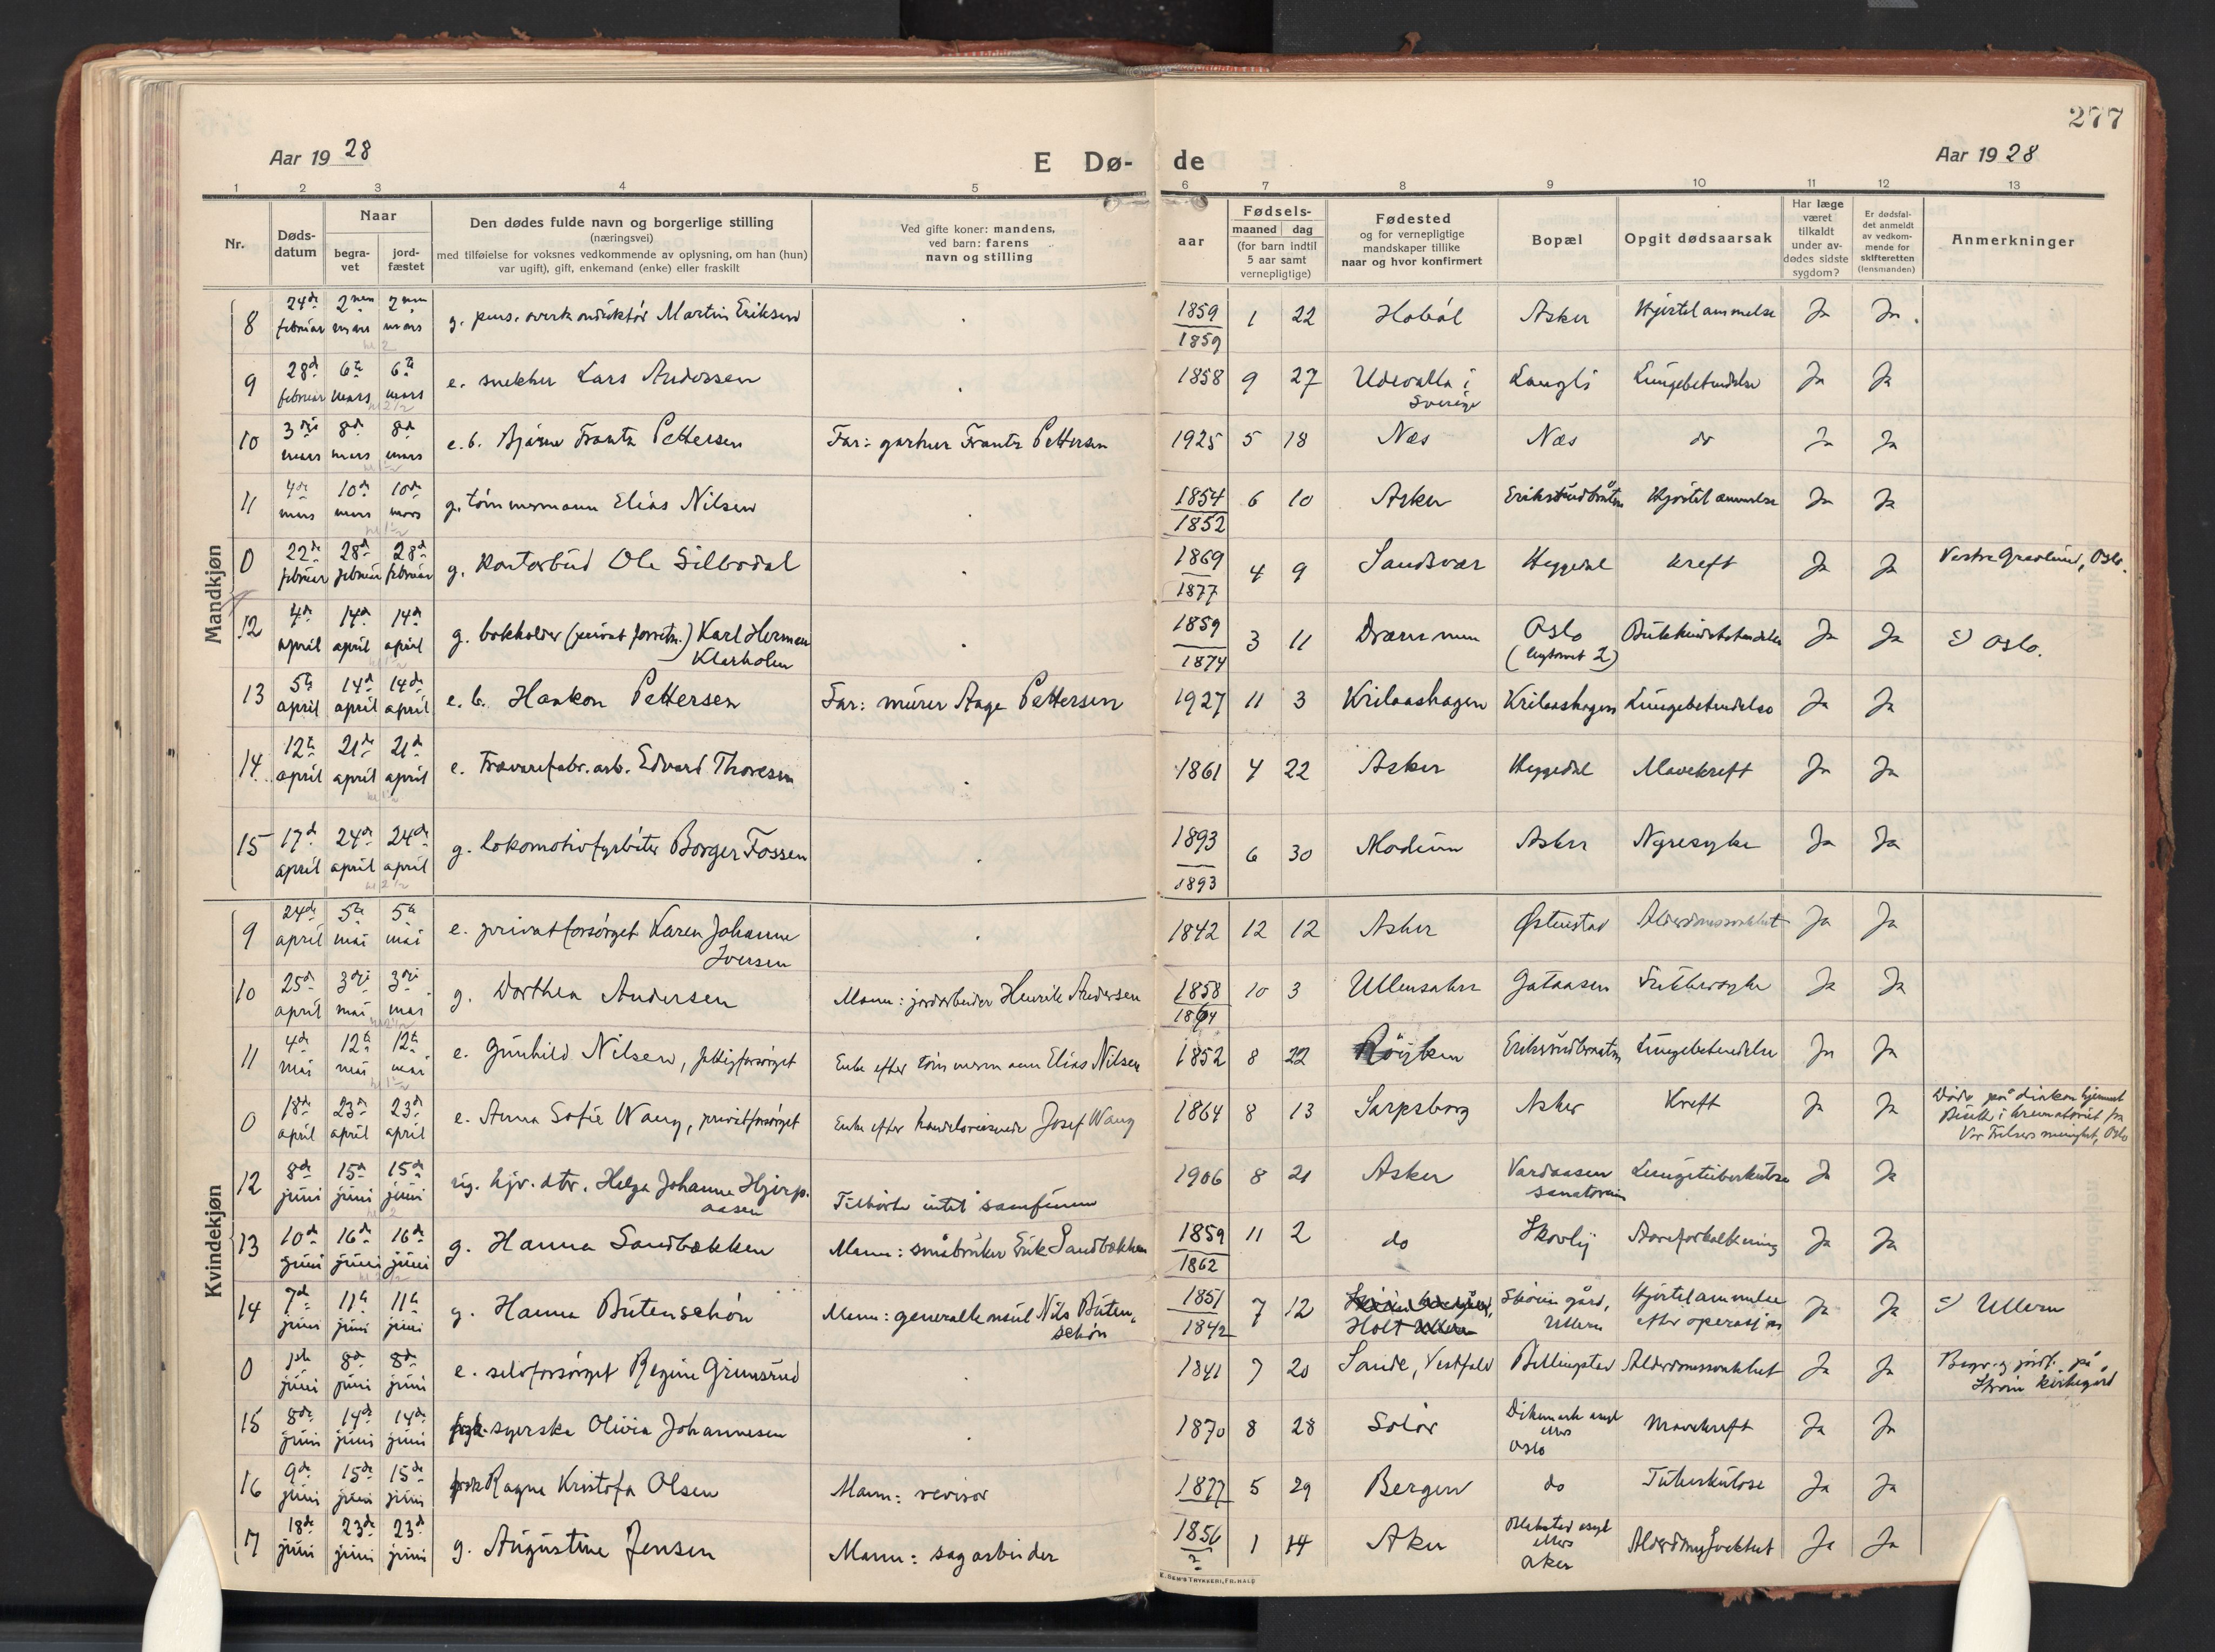 277
Aar 19 28
E Dø- de
Aar 19 28
1 2 3 4 5 6 7 8 9 10 11 12 13
Nr.
Døds-
datum
Naar
begra-
vet
jord-
fæstet
Den dødes fulde navn og borgerlige stilling
(næringsvei)
med tilføielse for voksnes vedkommende av oplysning, om han (hun)
var ugift), gift, enkemand (enke) eller fraskilt
Ved gifte koner: mandens,
ved barn: farens
navn og stilling
aar
Fødsels-
maaned dag
(for barn indtil
5 aar samt
vernepligtige)
Fødested
og for vernepligtige
mandskaper tillike
naar og hvor konfirmert
Bopæl
Opgit dødsaarsak
Har læge
været
tilkaldt
under av-
dødes sidste
sygdom?
Er dødsfal-
det anmeldt
av vedkom-
mende for
skifteretten
(lensmanden)
Anmerkninger
Mandkjøn
8 24de februar 2nen mars 2nen mars g. pens. overkonduktör Martin Eriksen 1859 1859 1 22 Hobøl Asker Hjertelammelse Ja Ja
9 28de februar 6te mars 6te mars e. snekker Lars Andersen 1858 9 27 Udevalla i Sverige Langli Lungebetendelse Ja Ja
10 3dje mars 8de mars 8de mars e.b. Bjarne Frantz Pettersen Far: gartner Frantz Pettersen 1925 5 18 Næs Næs do Ja Ja
11 4de mars 10de mars 10de mars g. tömmermann Elias Nilsen 1854 1852 6 10 Asker Eriksrudbråten Hjertelammelse Ja Ja
0 22de februar 28de februar 28de februar g. Kontorbud Ole Silbodal 1869 1877 4 9 Sandsvær Heggedal Kreft Ja Ja Vestre Gravlund, Oslo.
12 4de april 14de april 14de april g. bokholder (privat forretn.) Karl Herman Klarholm 1859 1874 3 11 Drammen Oslo Ja Ja Oslo.
13 5te april 14de april 14de april e.b. Haakon Pettersen Far: murer Aage Pettersen 1927 11 3 Krilaashagen Krilaashagen Lungebetendelse Ja Ja
14 12te april 21de april 21de april e. Trævarefabr. arb. Edvard Thoresen 1861 4 22 Asker Heggedal Mavekreft Ja Ja
15 17de april 24de april 24de april g. lokomotivfyrböter Borger Fossen 1893 1893 6 30 Modum Asker Nyresyke Ja Ja
Kvindekjøn
9 24de april 5te mai 5te mai e. privatforsörget Karen Johanne Iversen 1842 12 12 Asker Østenstad Alderdomssvakhet Ja Ja
10 25de april 3dje mai 3dje mai g. Dorthea Andersen Mann: jordarbeider Henrik Andersen 1858 1864 10 3 Ullensaker Gataasen Sukkersyke Ja Ja
11 4de mai 12te mai 12te mai e. Gunhild Nilsen, fattigforsörget Enke efter tömmermann Elias Nilsen 1852 8 22 Röyken Eriksrudbraaten Lungebetendelse Ja Ja
0 18de april 23de april 23de april e. Anna Sofie Wang, privatforsörget Enke efter handelsreisende Josef Wang 1864 8 13 Sarpsborg Asker Kreft Ja Ja Döde på diakonhjemmet Bisatt i krematoriet fra Vor Frelsers menighet, Oslo
12 8de juni 15de juni 15de juni ug. hjv. dtr. Helga Johanne Hjerpaasen Tilhörte intet samfunn 1906 8 21 Asker Vardaasen sanatorium Lungetuberkulose Ja Ja
13 10de juni 16de juni 16de juni g. Hanna Sandbækken Mann: småbruker Erik Sandbækken 1859 1862 11 2 do Skovly Aareforkalkning Ja Ja
14 7de juni 11te juni 11te juni g. Hanna Butenschön Mann: generalkonsul Nils Butenschön 1851 1842 7 12 Holt Skøien gård, Ullern Hjertelammelse efter operasjon Ja Ja Ullern
0 juni 8de juni 8de juni e. selvforsörget Regine Grimsrud 1841 7 20 Sande, Vestfold Billingstad Alderdomssvakhet Ja Ja Begr. og jordf. på kirkegård
15 8de juni 14de juni 14de juni syerske Olivia Johannesen 1870 8 28 Solör Dikemark asyl ellers Oslo Mavekreft Ja Ja
16 9de juni 15de juni 15de juni Ragna Kristofa Olsen Mann: revisor 1877 5 29 Bergen do Tuberkulose Ja Ja
17 18de juni 23de juni 23de juni g. Augustine Jensen Mann: sagarbeider 1856 ? 1 14 Aker asyl ellers Aker Alderdomssvakhet Ja Ja